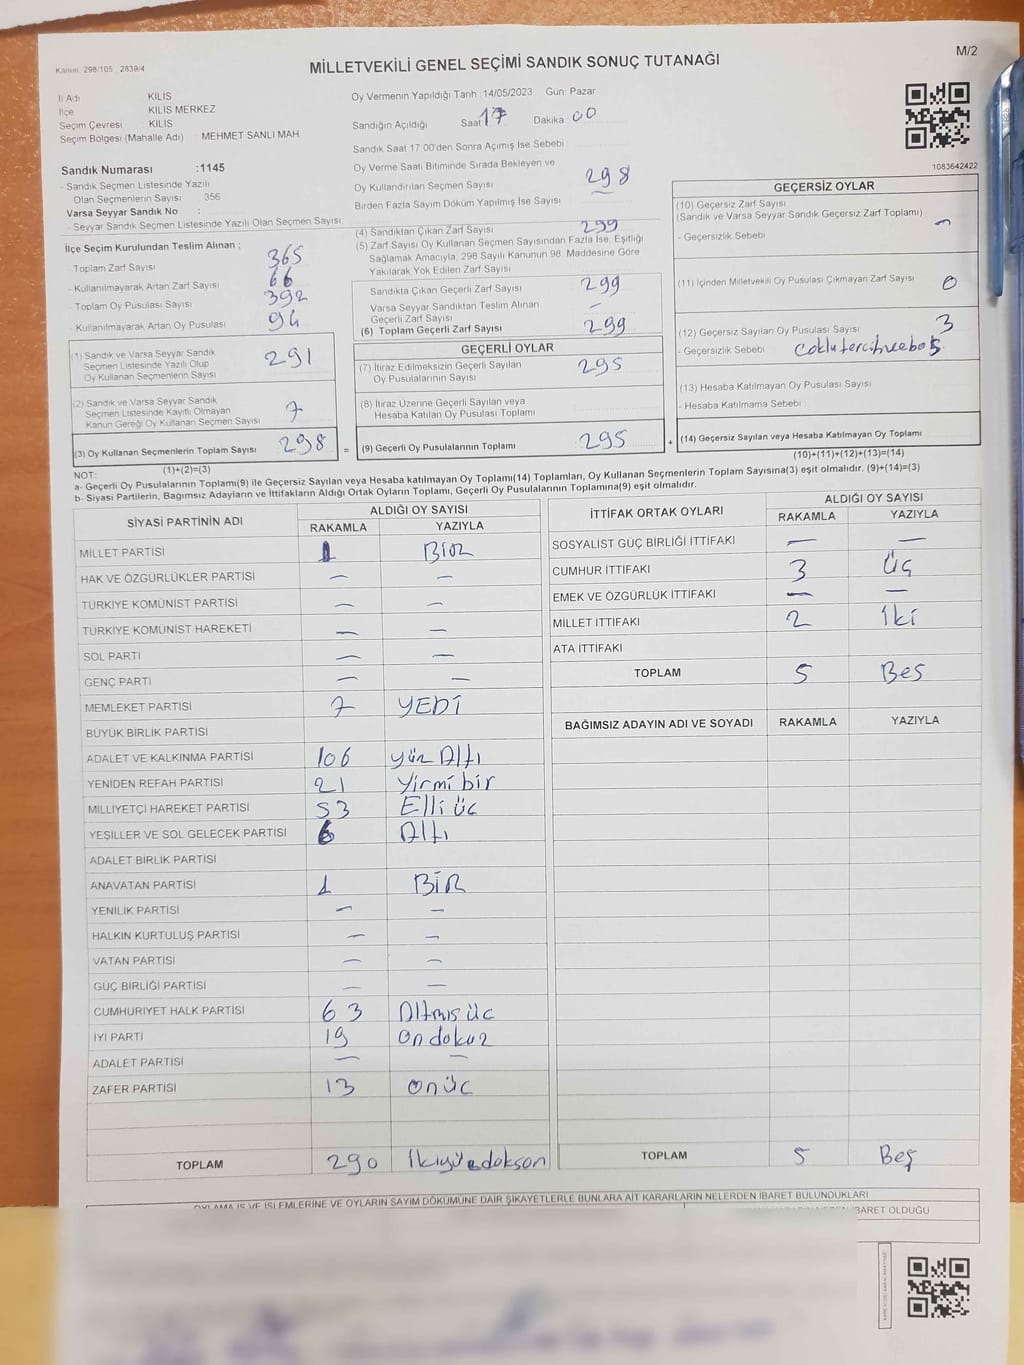 M/2
Kanun: 298/105 2839/4
MİLLETVEKİLİ GENEL SEÇİMİ SANDIK SONUÇ TUTANAĞI
İl Adı KİLİS
İlçe KİLİS MERKEZ
Seçim Çevresi KİLİS
Seçim Bölgesi (Mahalle Adı) MEHMET SANLI MAH
Sandık Numarası :1145
- Sandık Seçmen Listesinde Yazılı
Olan Seçmenlerin Sayısı 356
Varsa Seyyar Sandık No :
- Seyyar Sandık Seçmen Listesinde Yazılı Olan Seçmen Sayısı:
İlçe Seçim Kurulundan Teslim Alınan ;
- Toplam Zarf Sayısı 365
- Kullanılmayarak Artan Zarf Sayısı 66
- Toplam Oy Pusulası Sayısı 392
- Kullanılmayarak Artan Oy Pusulası 94
(1) Sandık ve Varsa Seyyar Sandık
Seçmen Listesinde Yazılı Olup
Oy Kullanan Seçmenlerin Sayısı 291
(2) Sandık ve Varsa Seyyar Sandık
Seçmen Listesinde Kayıtlı Olmayan
Kanun Gereği Oy Kullanan Seçmen Sayısı 7
(3) Oy Kullanan Seçmenlerin Toplam Sayısı 298 =
(1)+(2)=(3)
Oy Vermenin Yapıldığı Tarih :14/05/2023 Gün: Pazar
Sandığın Açıldığı Saat 17 Dakika 00
Sandık Saat 17.00'den Sonra Açımış İse Sebebi
Oy Verme Saati Bitiminde Sırada Bekleyen ve
Oy Kullandırılan Seçmen Sayısı 298
Birden Fazla Sayım Döküm Yapılmış İse Sayısı
(4) Sandıktan Çıkan Zarf Sayısı 299
(5) Zarf Sayısı Oy Kullanan Seçmen Sayısından Fazla İse, Eşitliği
Sağlamak Amacıyla, 298 Sayılı Kanunun 98. Maddesine Göre
Yakılarak Yok Edilen Zarf Sayısı
Sandıkta Çıkan Geçerli Zarf Sayısı 299
Varsa Seyyar Sandıktan Teslim Alınan
Geçerli Zarf Sayısı –
(6) Toplam Geçerli Zarf Sayısı 299
GEÇERLİ OYLAR
(7) İtiraz Edilmeksizin Geçerli Sayılan
Oy Pusulalarının Sayısı 295
(8) İtiraz Üzerine Geçerli Sayılan veya
Hesaba Katılan Oy Pusulası Toplamı
(9) Geçerli Oy Pusulalarının Toplamı 295 +
1083642422
GEÇERSİZ OYLAR
(10) Geçersiz Zarf Sayısı
(Sandık ve Varsa Seyyar Sandık Geçersiz Zarf Toplamı) –
- Geçersizlik Sebebi
(11) İçinden Milletvekili Oy Pusulası Çıkmayan Zarf Sayısı 0
(12) Geçersiz Sayılan Oy Pusulası Sayısı 3
- Geçersizlik Sebebi
(13) Hesaba Katılmayan Oy Pusulası Sayısı
- Hesaba Katılmama Sebebi
(14) Geçersiz Sayılan veya Hesaba Katılmayan Oy Toplamı
(10)+(11)+(12)+(13)=(14)
NOT:
a- Geçerli Oy Pusulalarının Toplamı(9) ile Geçersiz Sayılan veya Hesaba katılmayan Oy Toplamı(14) Toplamları, Oy Kullanan Seçmenlerin Toplam Sayısına(3) eşit olmalıdır. (9)+(14)=(3)
b- Siyasi Partilerin, Bağımsız Adayların ve İttifakların Aldığı Ortak Oyların Toplamı, Geçerli Oy Pusulalarının Toplamına(9) eşit olmalıdır.
SİYASİ PARTİNİN ADI ALDIĞI OY SAYISI
RAKAMLA YAZIYLA
MİLLET PARTİSİ 1 BİR
HAK VE ÖZGÜRLÜKLER PARTİSİ – –
TÜRKİYE KOMÜNİST PARTİSİ – –
TÜRKİYE KOMÜNİST HAREKETİ – –
SOL PARTİ – –
GENÇ PARTİ – –
MEMLEKET PARTİSİ 7 YEDİ
BÜYÜK BİRLİK PARTİSİ
ADALET VE KALKINMA PARTİSİ 106 yüz Altı
YENİDEN REFAH PARTİSİ 21 Yirmi bir
MİLLİYETÇİ HAREKET PARTİSİ 53 Elli üç
YEŞİLLER VE SOL GELECEK PARTİSİ 6 Altı
ADALET BİRLİK PARTİSİ
ANAVATAN PARTİSİ 1 BİR
YENİLİK PARTİSİ – –
HALKIN KURTULUŞ PARTİSİ – –
VATAN PARTİSİ – –
GÜÇ BİRLİĞİ PARTİSİ – –
CUMHURİYET HALK PARTİSİ 63 Altmıs üc
İYİ PARTİ 19 on dokuz
ADALET PARTİSİ – –
ZAFER PARTİSİ 13 onüc
TOPLAM 290 ikiyüzdokson
İTTİFAK ORTAK OYLARI ALDIĞI OY SAYISI
RAKAMLA YAZIYLA
SOSYALİST GÜÇ BİRLİĞİ İTTİFAKI – –
CUMHUR İTTİFAKI 3 Üç
EMEK VE ÖZGÜRLÜK İTTİFAKI – –
MİLLET İTTİFAKI 2 İki
ATA İTTİFAKI
TOPLAM 5 Bes
BAĞIMSIZ ADAYIN ADI VE SOYADI RAKAMLA YAZIYLA
TOPLAM 5 Beş
OYLAMA İŞ VE İŞLEMLERİNE VE OYLARIN SAYIM DÖKÜMÜNE DAİR ŞİKAYETLERLE BUNLARA AİT KARARLARIN NELERDEN İBARET BULUNDUKLARI
İBARET OLDUĞU